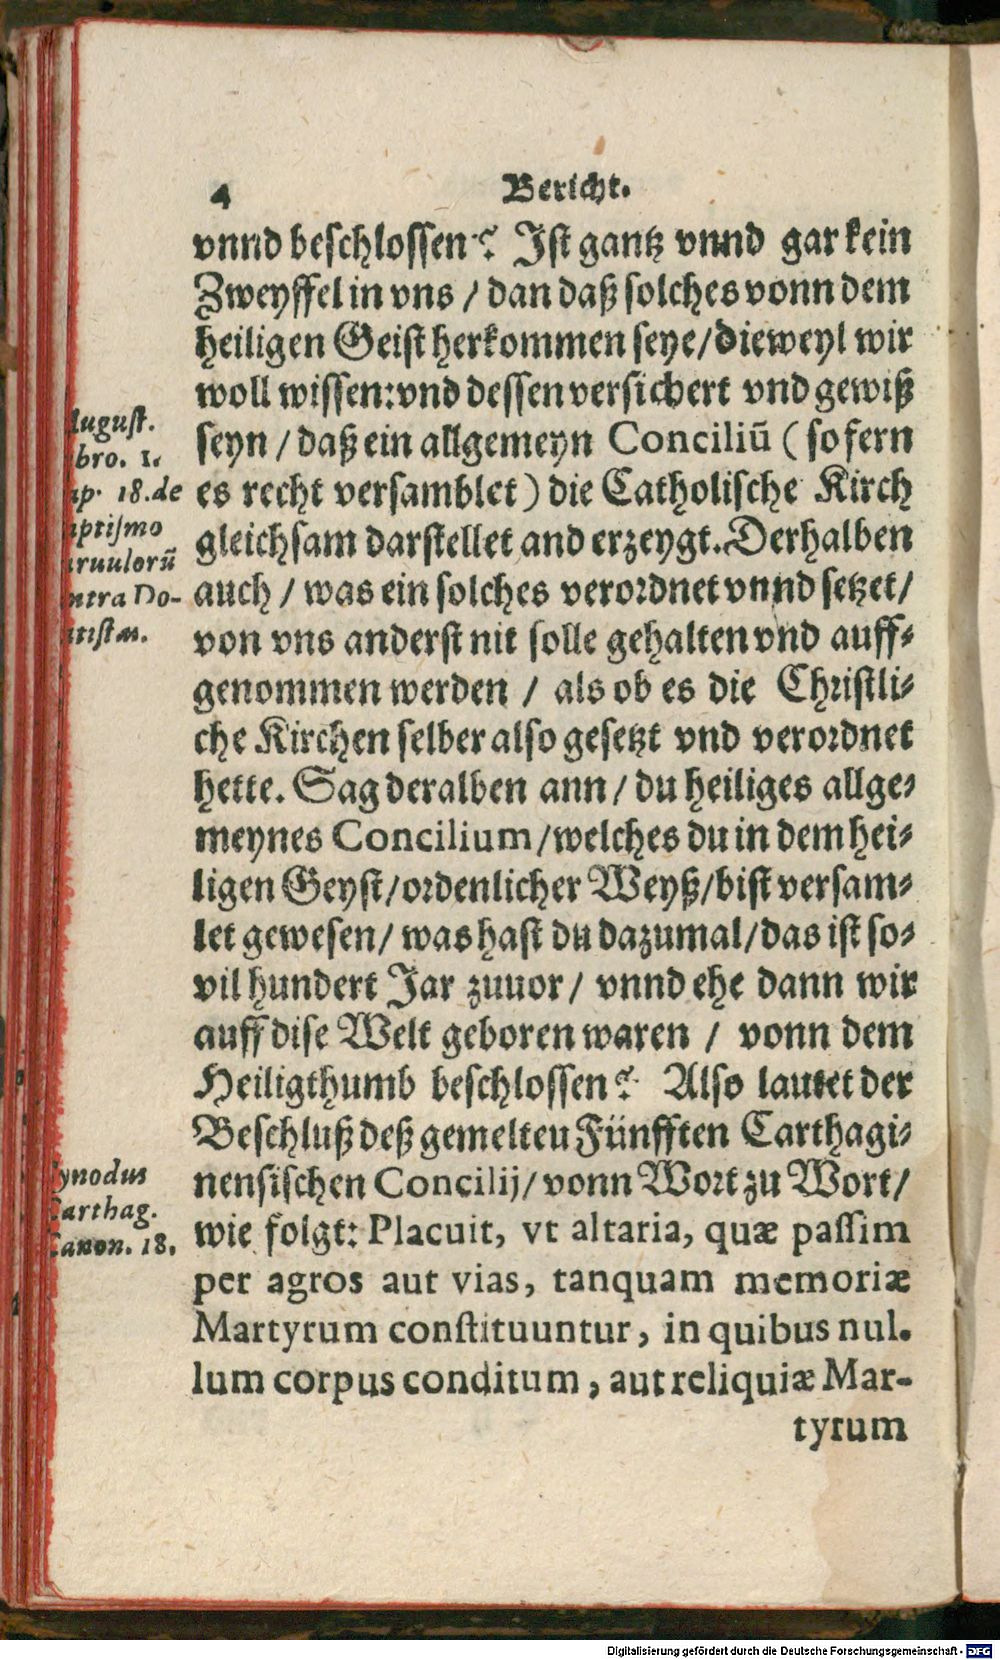 4
Bericht.
vnnd beschlossen? Ist gantz vnnd gar kein
Zweyffel in vns / dan daß solches vonn dem
heiligen Geist herkommen seye/dieweyl wir
woll wissen:vnd dessen versichert vnd gewiß
seyn / daß ein allgemeyn Conciliū ( so fern
es recht versamblet) die Catholische Kirch
gleichsam darstellet and erzeygt. Derhalben
auch / was ein solches verordnet vnnd setzet/
von vns anderst nit solle gehalten vnd auff-
genommen werden / als ob es die Christli-
che Kirchen selber also gesetzt vnd verordnet
hette. Sag deralben ann / du heiliges allge-
meynes Concilium/welches du in dem hei-
ligen Geyst/ordenlicher Weyß/bist versam-
let gewesen/ was hast du dazumal/das ist so-
vil hundert Jar zuuor / vnnd ehe dann wir
auff dise Welt geboren waren / vonn dem
Heiligthumb beschlossen? Also lautet der
Beschluß deß gemelteu Fünfften Carthagi-
nensischen Concilij/ vonn Wort zu Wort/
wie folgt: Placuit, vt altaria, quæ passim
per agros aut vias, tanquam memoriæ
Martyrum constituuntur, in quibus nul.
lum corpus conditum, aut reliquiæ Mar-
tyrum
August.
bro. 1.
ap. 18. de
aptismo
aruulorū
ntra Do-
atistas.
Synodus
Carthag.
Canon. 18.
Digitalisierung gefördert durch die Deutsche Forschungsgemeinschaft - DFG